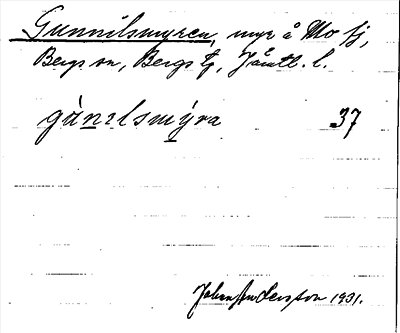 Gunnilsmyren, myr å Mo fj,
Bergs sn, Bergs tg, Jämtl. l.
gànɩlsmýra 37
John Andersson 1931.